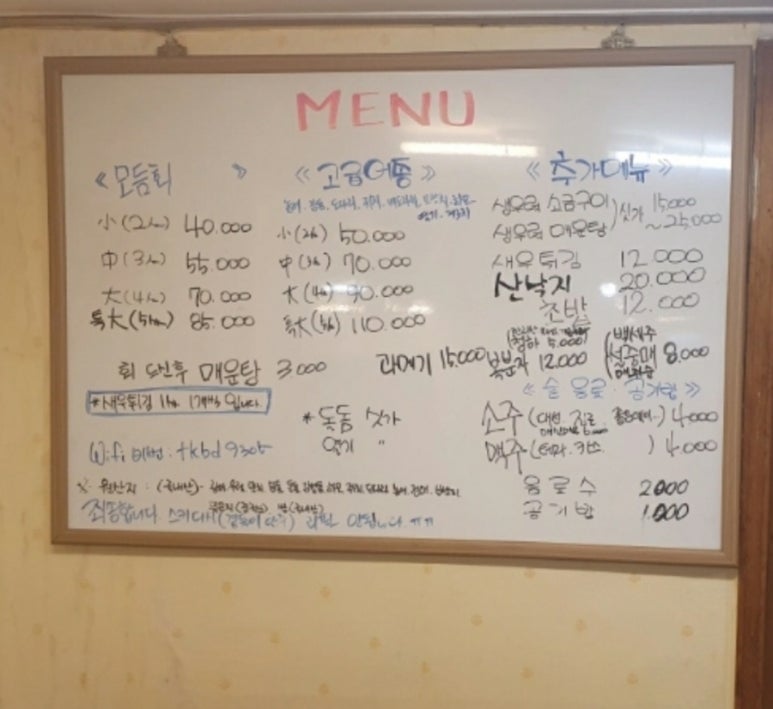 MENU
《모듬회 》
小 (2人) 40.000
中 (3人) 55.000
大 (4人) 70.000
특大 (5人) 85.000
회 드신후 매운탕 3.000
*새우튀김 1人 1개씩 입니다.
Wifi 비번 : tkbd9305
《고급어종》
小 (2人) 50.000
中 (3人) 70.000
大 (4人) 90.000
특大 110.000
과메기 15.000
*돌돔 싯가
열기 "
《추가메뉴》
생우럭 소금구이
생우럭 매운탕
싯가 15.000 ~25.000
새우튀김 12.000
산낙지 20.000
초밥 12.000
(청하 5.000)
복분자 12.000
(백세주
설중매 8.000
《술 음료 · 공기밥》
소주 (대선. 진로. ) 4.000
맥주 (테라. 카스. ) 4.000
음료수 2.000
공기밥 1.000
※ 원산지 : (국내산)
죄송합니다. 스끼다시(곁들이 안주) 리필 안됩니다. ㅠㅠ